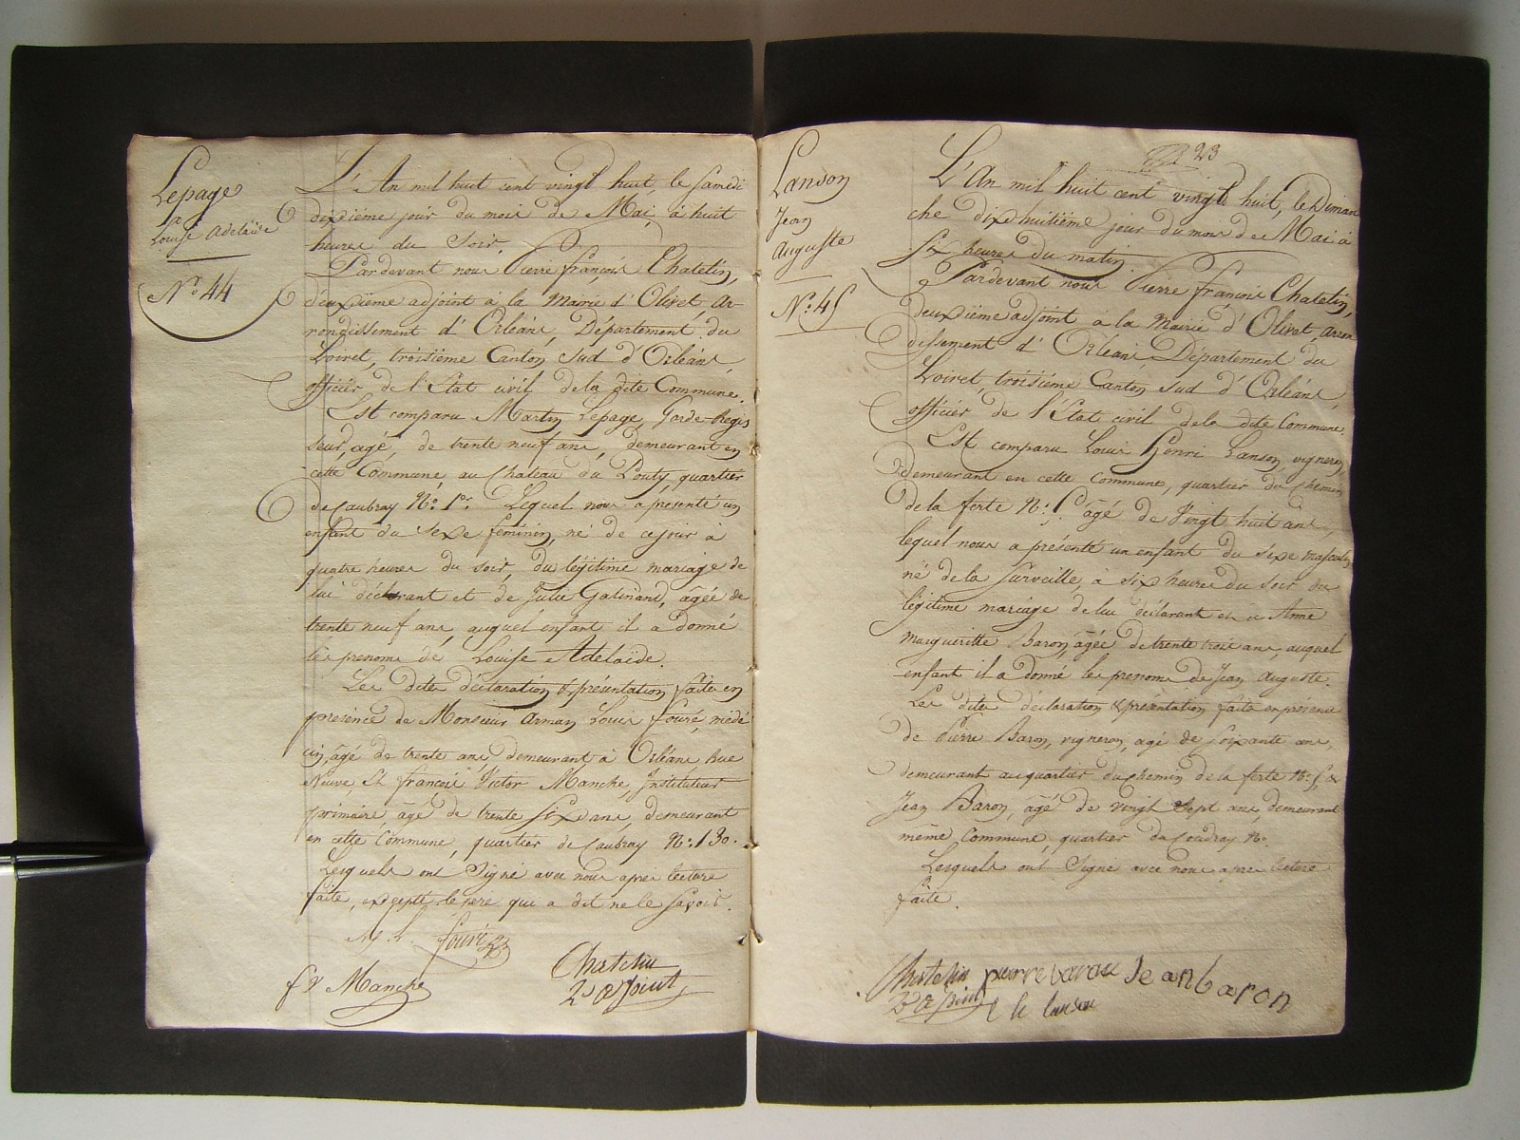 Lepage
Louise Adelaïde
N.° 44
L'An mil huit cent vingt huit, le Samedi
dixsième jour du mois de Mai, à huit
heures du Soir,
Pardevant nous Pierre françois Chatelin,
deuxsième adjoint à la Mairie d'Olivet, Ar-
rondissement d'Orléans, Département du
Loiret, troisième Canton sud d'Orléans,
officier de l'Etat civil de la dite Commune.
Est comparu Martin Lepage, Garde-Regis
seur, agé, de trente neuf ans, demeurant en
cette Commune, au Chateau du Pouty, quartier
de Caubray N.° 1.er Lequel nous a présenté un
enfant du Sexe féminin, né de ce jour à
quatre heures du soir, du légitime mariage de
lui déclarant et de Julie Galinand, âgée de
trente neuf ans, auquel enfant il a donné
les prenoms de Louise Adelaïde.
Les dites déclaration & présentation faites en
présence de Monsieur Arman Louis fouré, méde
cin, âgé de trente ans, demeurant à Orléans, Rue
Neuve, & françois Victor Manche, Instituteur
primaire, âgé de trente Six ans, demeurant
en cette Commune, quartier de Caubray N.° 130.
Lesquels ont Signé avec nous après lecture
faite, excepté le père qui a dit ne le Savoir.
fouré
Chatelin
f V Manche
2.e adjoint
23
Lanson
Jean
Auguste
N.° 45
L'An mil huit cent vingt huit, le Diman
che dixhuitième jour du mois de Mai à
Six heures du matin.
Pardevant nous Pierre françois Chatelin,
deuxsième adjoint à la Mairie d'Olivet, Arron
dissement d'Orléans Département du
Loiret, troisième Canton sud d'Orléans,
officier de l'Etat civil de la dite Commune.
Est comparu Louis Henri Lanson, vigneron,
demeurant en cette Commune, quartier du chemin
de la ferte N.° 5 âgé de Vingt huit ans,
lequel nous a présenté un enfant du sexe masculin,
né de la surveille, à six heures du soir du
légitime mariage de lui déclarant et de Anne
Margueritte Baron, âgée de trente trois ans, auquel
enfant il a donné les prenoms de Jean Auguste.
Les dites déclaration & présentation faites en présence
de Pierre Baron, vigneron, agé de soixante ans,
demeurant au quartier du chemin de la ferte N.° 5 &
Jean Baron, âgé de vingt sept ans, demeurant
même Commune, quartier du Coudray N.°
Lesquels ont Signé avec nous après lecture
faite.
Chatelin pierre baron Jean baron
2.e adjoint l h lanson